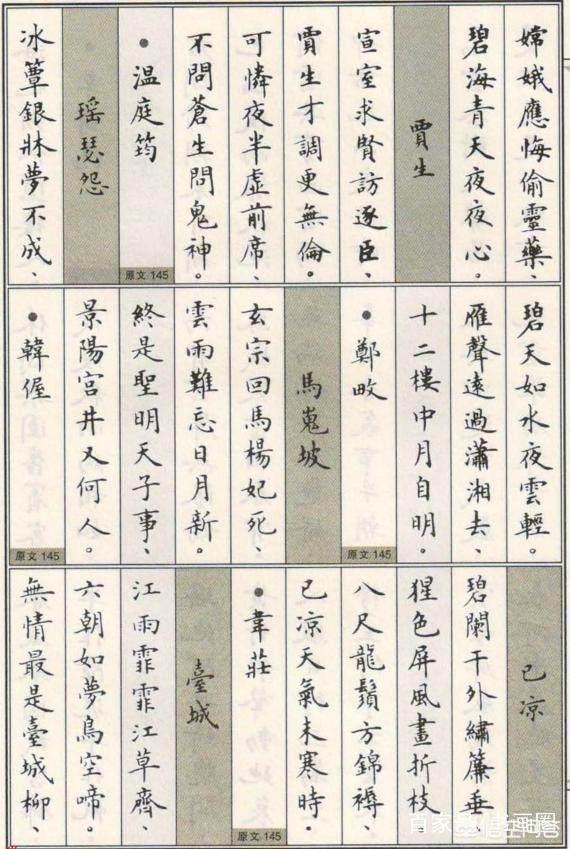 嫦娥應悔偷靈藥、
碧海青天夜夜心。
賈生
宣室求賢訪逐臣、
賈生才調更無倫。
可憐夜半虛前席、
不問蒼生問鬼神。
•溫庭筠
原文145
瑶瑟怨
冰簟銀牀夢不成、
碧天如水夜雲輕。
雁聲遠過瀟湘去、
十二樓中月自明。
•鄭畋
原文145
馬嵬坡
玄宗回馬楊妃死、
雲雨難忘日月新。
終是聖明天子事、
景陽宮井又何人。
•韓偓
原文145
已凉
碧闌干外繡簾垂
猩色屏風畫折枝
八尺龍鬚方錦褥.
已凉天氣未寒時.
•韋莊
原文145
臺城
江雨霏霏江草齊、
六朝如夢鳥空啼。
無情最是臺城柳、